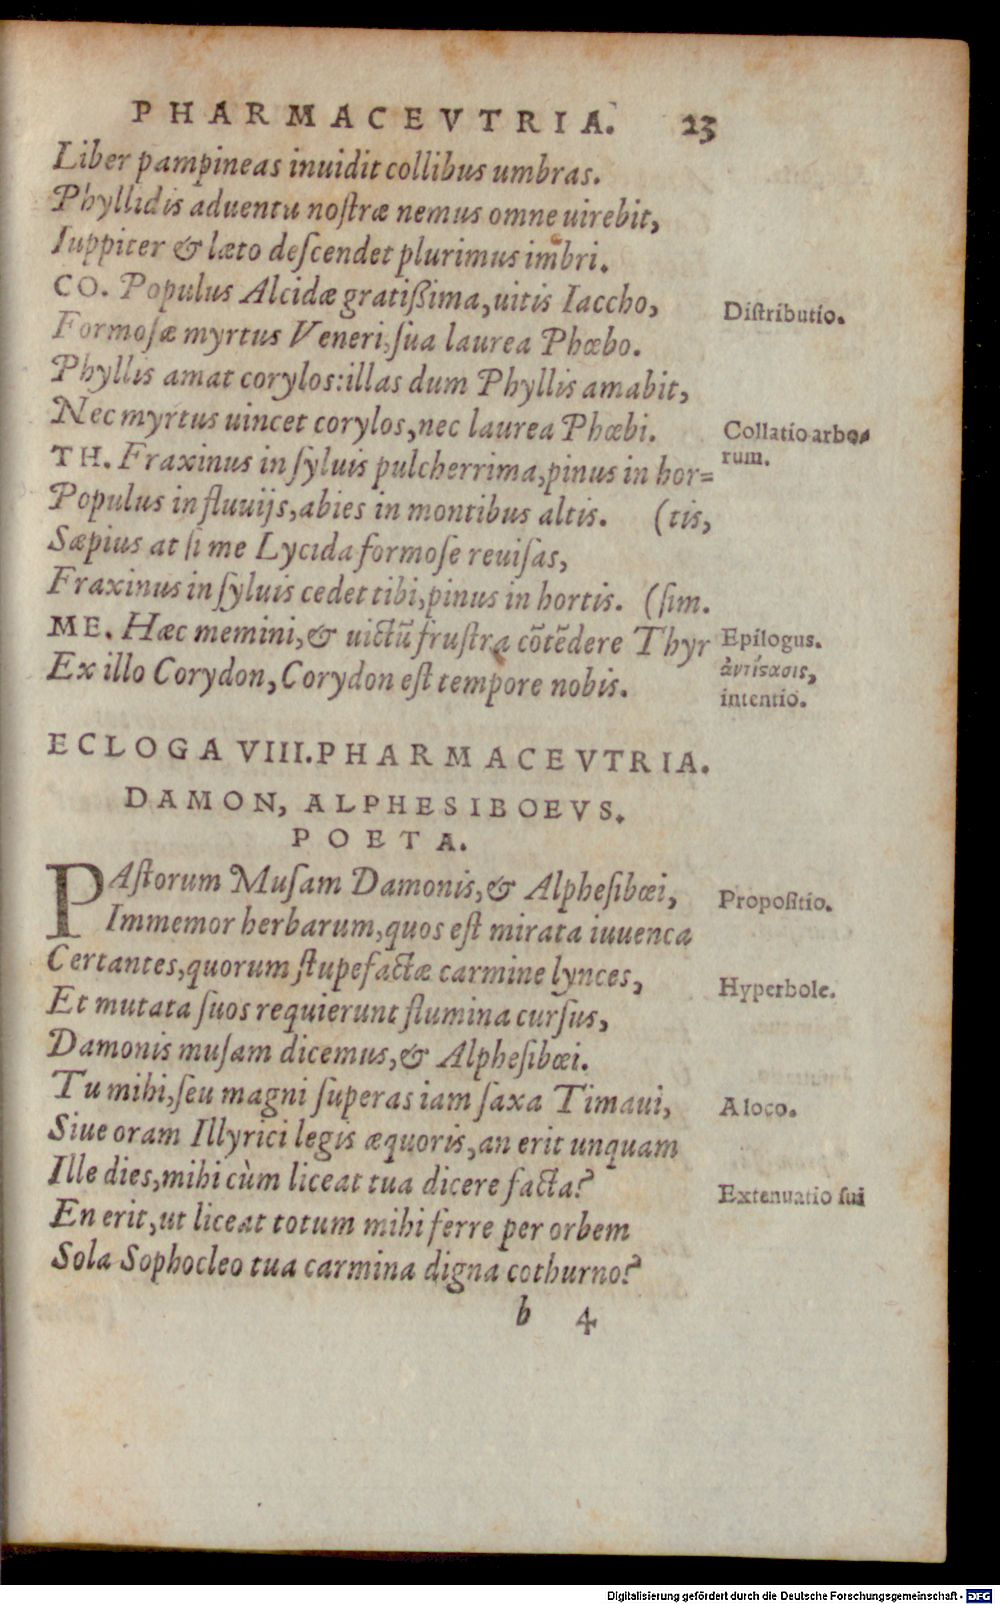 PHARMACEVTRIA. 23
Liber pampineas inuidit collibus umbras.
Phyllidis aduentu noſtræ nemus omne uirebit,
Iuppiter & læto deſcendet plurimus imbri.
CO. Populus Alcidæ gratißima, uitis Iaccho,
Distributio.
Formoſæ myrtus Veneri, ſua laurea Phœbo.
Phyllis amat corylos: illas dum Phyllis amabit,
Nec myrtus uincet corylos, nec laurea Phœbi.
Collatio arbo-
rum.
TH. Fraxinus in ſyluis pulcherrima, pinus in hor=
Populus in fluuijs, abies in montibus altis. (tis,
Sæpius at ſi me Lycida formoſe reuiſas,
Fraxinus in ſyluis cedet tibi, pinus in hortis. (ſim.
ME. Hæc memini, & uictũ fruſtra cõtẽdere Thyr
Epilogus.
Ex illo Corydon, Corydon eſt tempore nobis.
ἀντίϛασις,
intentio.
ECLOGA VIII. PHARMACEVTRIA.
DAMON, ALPHESIBOEVS.
POETA.
PAſtorum Muſam Damonis, & Alpheſibœi,
Propoſitio.
Immemor herbarum, quos eſt mirata iuuenca
Certantes, quorum ſtupefactæ carmine lynces,
Hyperbole.
Et mutata ſuos requierunt flumina curſus,
Damonis muſam dicemus, & Alpheſibœi.
Tu mihi, ſeu magni ſuperas iam ſaxa Timaui,
A loco.
Siue oram Illyrici legis æquoris, an erit unquam
Ille dies, mihi cùm liceat tua dicere facta?
Extenuatio ſui
En erit, ut liceat totum mihi ferre per orbem
Sola Sophocleo tua carmina digna cothurno?
b 4
Digitalisierung gefördert durch die Deutsche Forschungsgemeinschaft - DFG